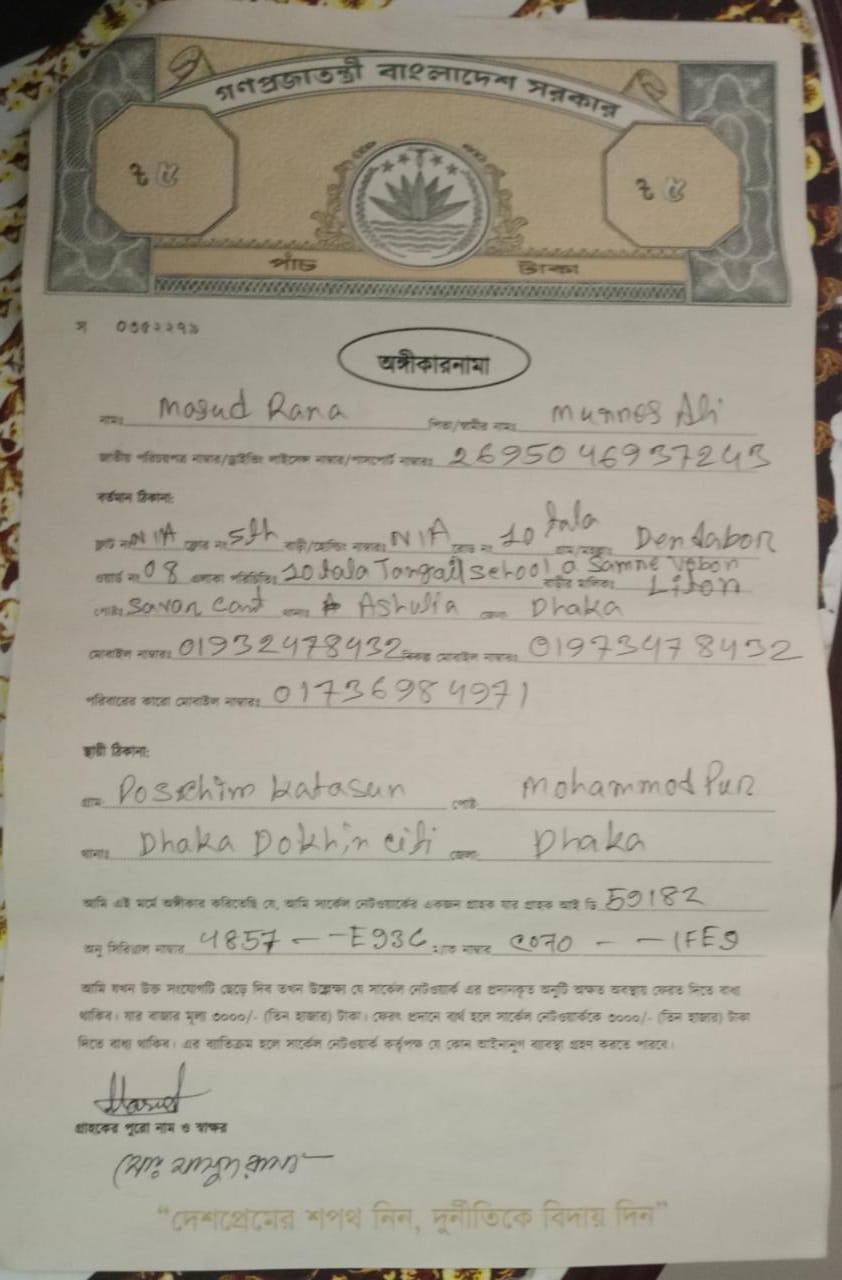 গণপ্রজাতন্ত্রী বাংলাদেশ সরকার
৫ ৫
পাঁচ টাকা
স ০৩৫২২৭৯
অঙ্গীকারনামা
নামঃ Masud Rana পিতা/স্বামীর নামঃ Munnes Ali
জাতীয় পরিচয়পত্র নাম্বার/ড্রাইভিং লাইসেন্স নাম্বার/পাসপোর্ট নাম্বারঃ 2695046937243
বর্তমান ঠিকানা:
ফ্লাট নং N/A ফ্লোর নং 5th বাড়ী/হোল্ডিং নাম্বারঃ N/A রোড নং 10 tala গ্রাম/মহল্লা Dendabor
ওয়ার্ড নং 08 এলাকা পরিচিতিঃ 10 tala Tangail School a Samne Vobon বাড়ীর মালিকঃ Liton
পোষ্টঃ Savar Cant থানাঃ Ashulia জেলা Dhaka
মোবাইল নাম্বারঃ 01932478432 বিকল্প মোবাইল নাম্বারঃ 01973478432
পরিবারের কারো মোবাইল নাম্বারঃ 01736984971
স্থায়ী ঠিকানা:
গ্রামঃ Poschim Katasur পোষ্টঃ Mohammod Pur
থানাঃ Dhaka Dokhin citi জেলাঃ Dhaka
আমি এই মর্মে অঙ্গীকার করিতেছি যে, আমি সার্কেল নেটওয়ার্কের একজন গ্রাহক যার গ্রাহক আই ডি 59182
অনু সিরিয়াল নাম্বার 4857--E93C নাম্বার C070--1FE9
আমি যখন উক্ত সংযোগটি ছেড়ে দিব তখন উল্লেক্ষ্য যে সার্কেল নেটওয়ার্ক এর প্রদানকৃত অনুটি অক্ষত অবস্থায় ফেরত দিতে বাধ্য
থাকিব। যার বাজার মূল্য ৩০০০/- (তিন হাজার) টাকা। ফেরৎ প্রদানে ব্যর্থ হলে সার্কেল নেটওয়ার্ককে ৩০০০/- (তিন হাজার) টাকা
দিতে বাধ্য থাকিব। এর ব্যতিক্রম হলে সার্কেল নেটওয়ার্ক কর্তৃপক্ষ যে কোন আইনানুগ ব্যবস্থা গ্রহণ করতে পারবে।
Masud
গ্রাহকের পুরো নাম ও স্বাক্ষর
মোঃ মাসুদ রানা
“দেশপ্রেমের শপথ নিন, দুর্নীতিকে বিদায় দিন”